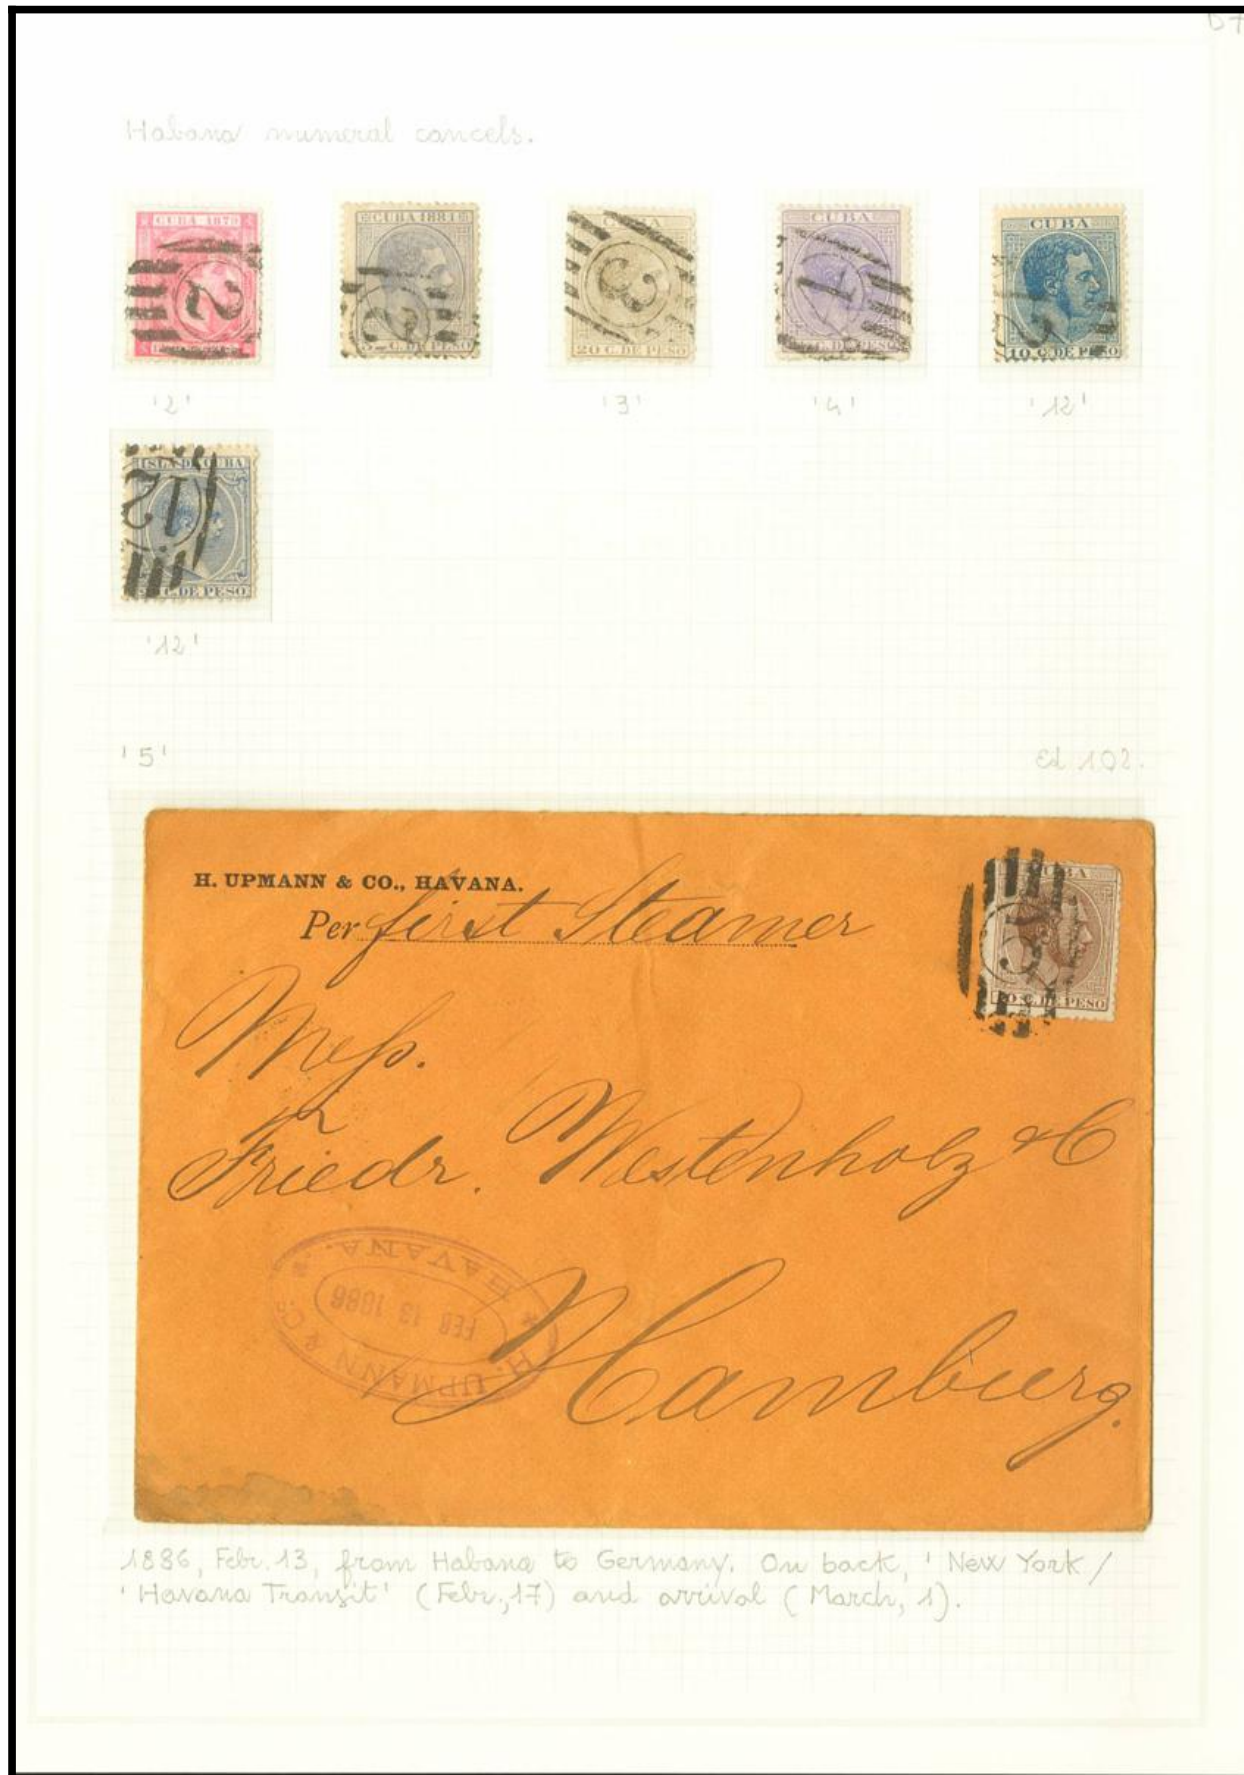 D7
Habana numeral cancels.
CUBA 1879
CUBA 1881
C. DE PESO
CUBA
20 C. DE PESO
CUBA
C. DE PESO
CUBA
10 C. DE PESO
'2'
'3'
'4'
'12'
ISLA DE CUBA
C. DE PESO
'12'
'5'
Ed 102.
H. UPMANN & CO., HAVANA.
Per first Steamer
CUBA
C. DE PESO
Mess.
Friedr. Westenholz & C
Hamburg.
H. UPMANN & Co. * HAVANA. *
FEB 13 1886
1886, Febr. 13, from Habana to Germany. On back, 'New York /
'Havana Transit' (Febr, 17) and arrival (March, 1).